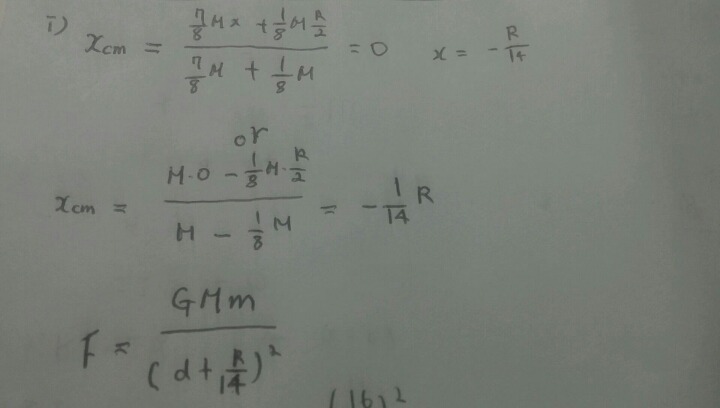 i) x_cm = (7/8 M x + 1/8 M R/2) / (7/8 M + 1/8 M) = 0 x = - R/14
or
x_cm = (M·0 - 1/8 M·R/2) / (M - 1/8 M) = - 1/14 R
F = GMm / (d + R/14)²
(16)²